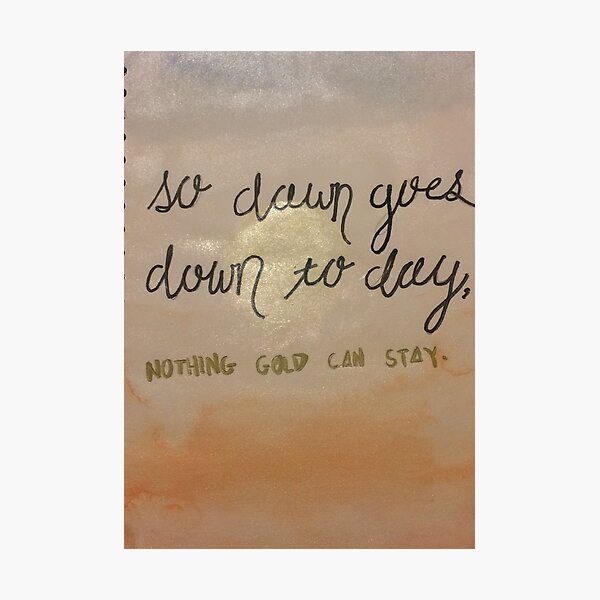 so dawn goes
down to day,
NOTHING GOLD CAN STAY.